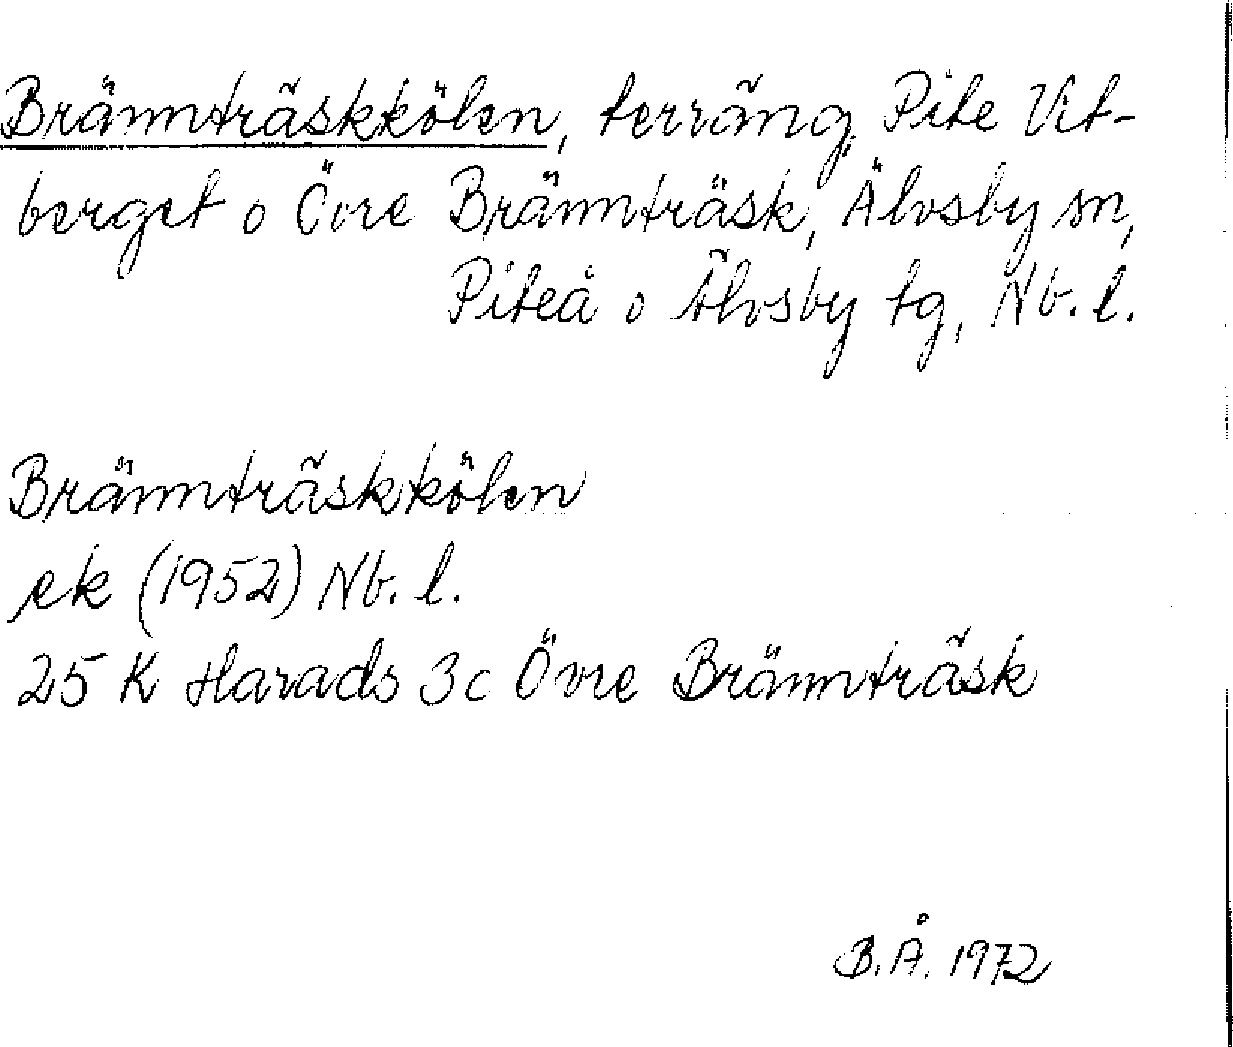 Brännträskkölen, terräng, Pite Vit-
berget o Övre Brännträsk, Älvsby sn,
Piteå o Älvsby tg, Nb. l.
Brännträskkölen
ek (1952) Nb. l.
25 K Harads 3c Övre Brännträsk
B.Å. 1972